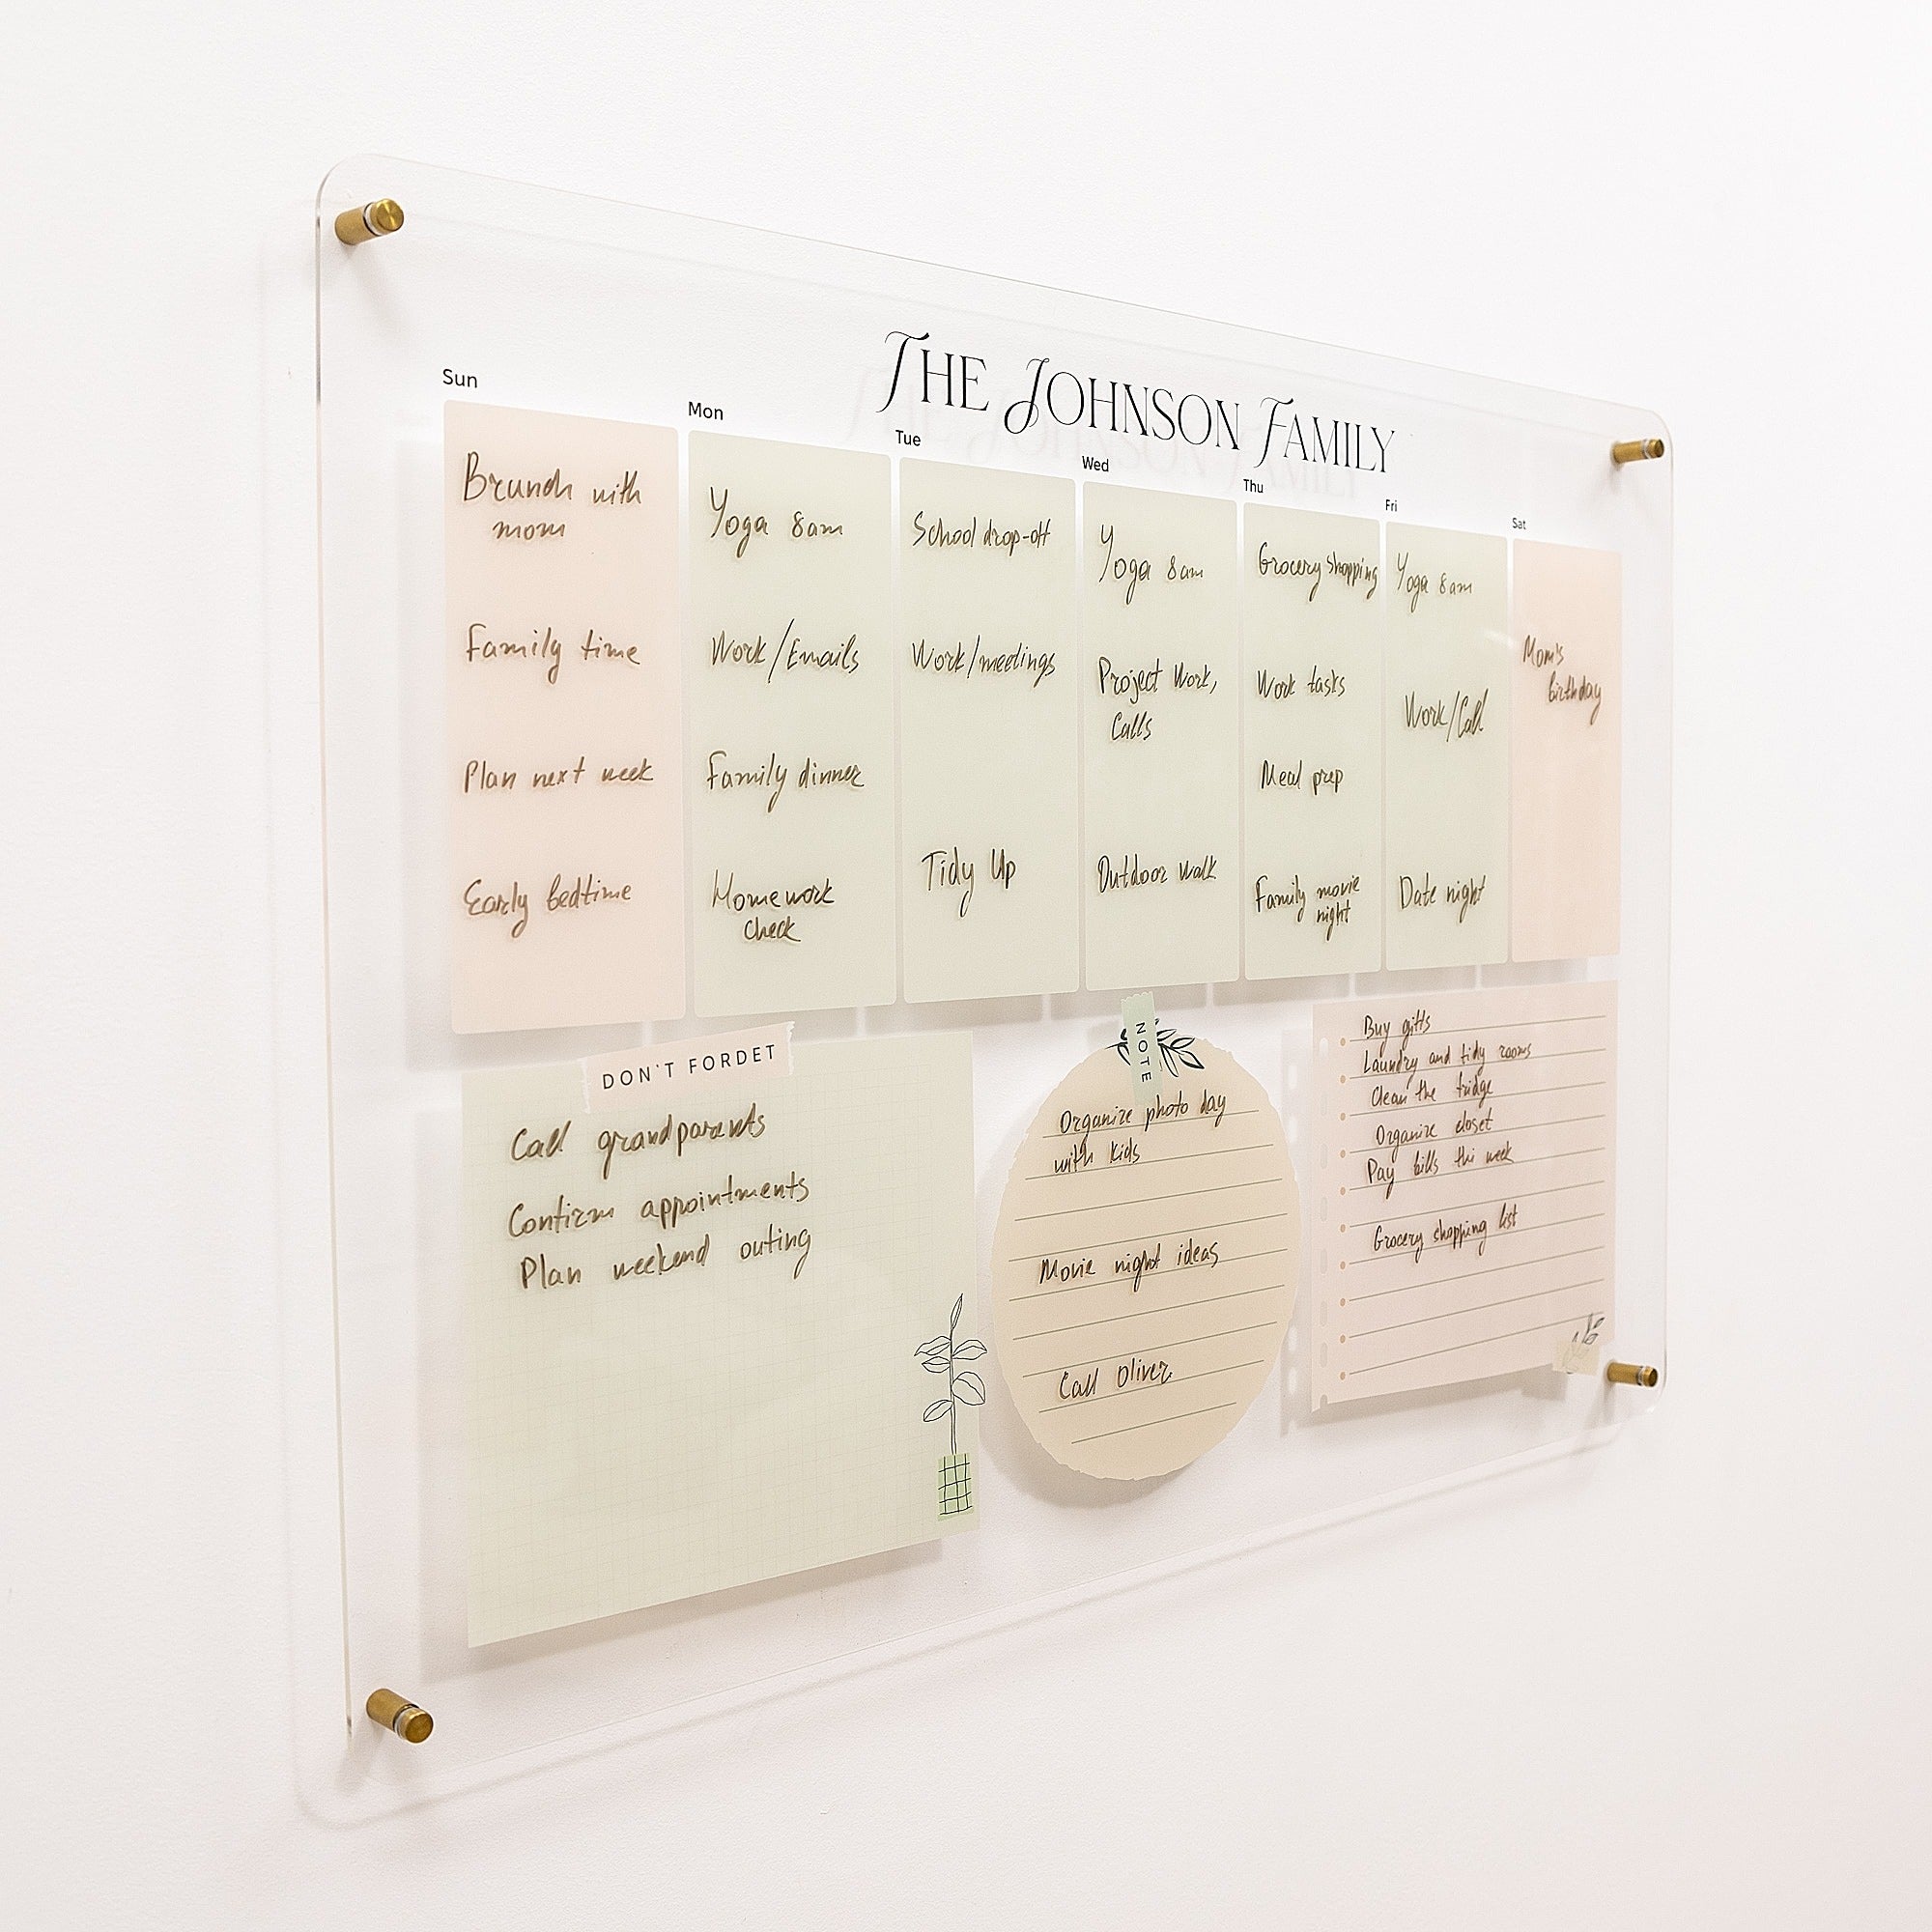 THE JOHNSON FAMILY
Sun
Brunch with
mom
Family time
Plan next week
Early bedtime
Mon
Yoga 8am
Work/Emails
Family dinner
Homework
check
Tue
School drop-off
Work/meetings
Tidy Up
Wed
Yoga 8am
Project Work,
Calls
Outdoor walk
Thu
Grocery shopping
Work tasks
Meal prep
Family movie
night
Fri
Yoga 8am
Work/Call
Date night
Sat
Mom's
birthday
DON'T FORDET
Call grandparents
Confirm appointments
Plan weekend outing
NOTE
Organize photo day
with kids
Movie night ideas
Call Oliver
Buy gifts
Laundry and tidy rooms
Clean the fridge
Organize closet
Pay bills this week
Grocery shopping list